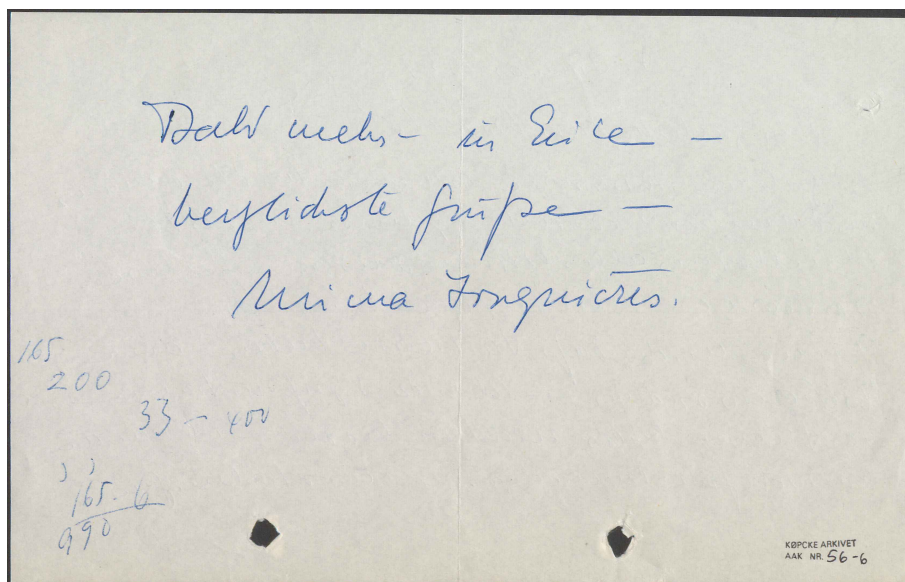 Bald mehr – in Eile –
herzlichste Grüße –
165
200
33 – 400
165 - 6
990
KØPCKE ARKIVET
AAK NR. 56-6